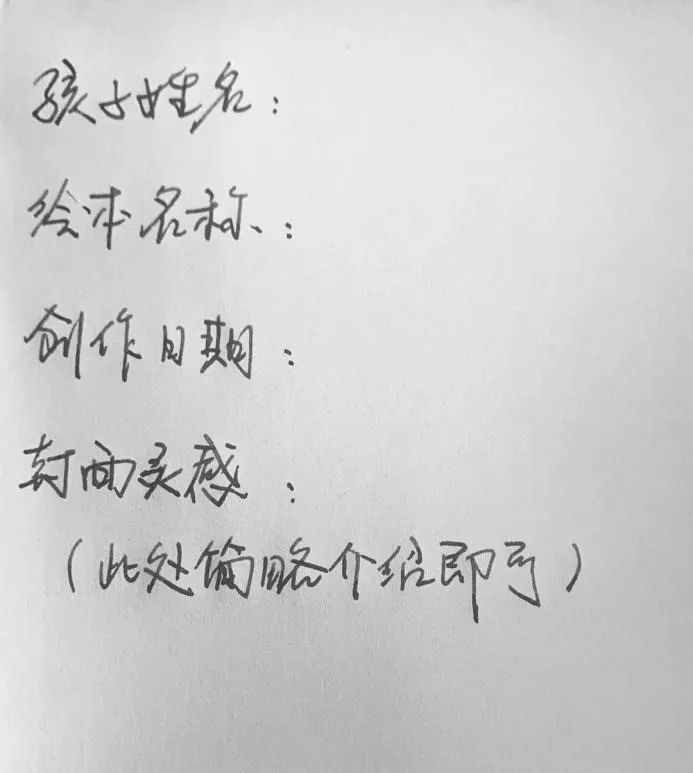 孩子姓名：
绘本名称：
创作日期：
封面灵感：
（此处简略介绍即可）